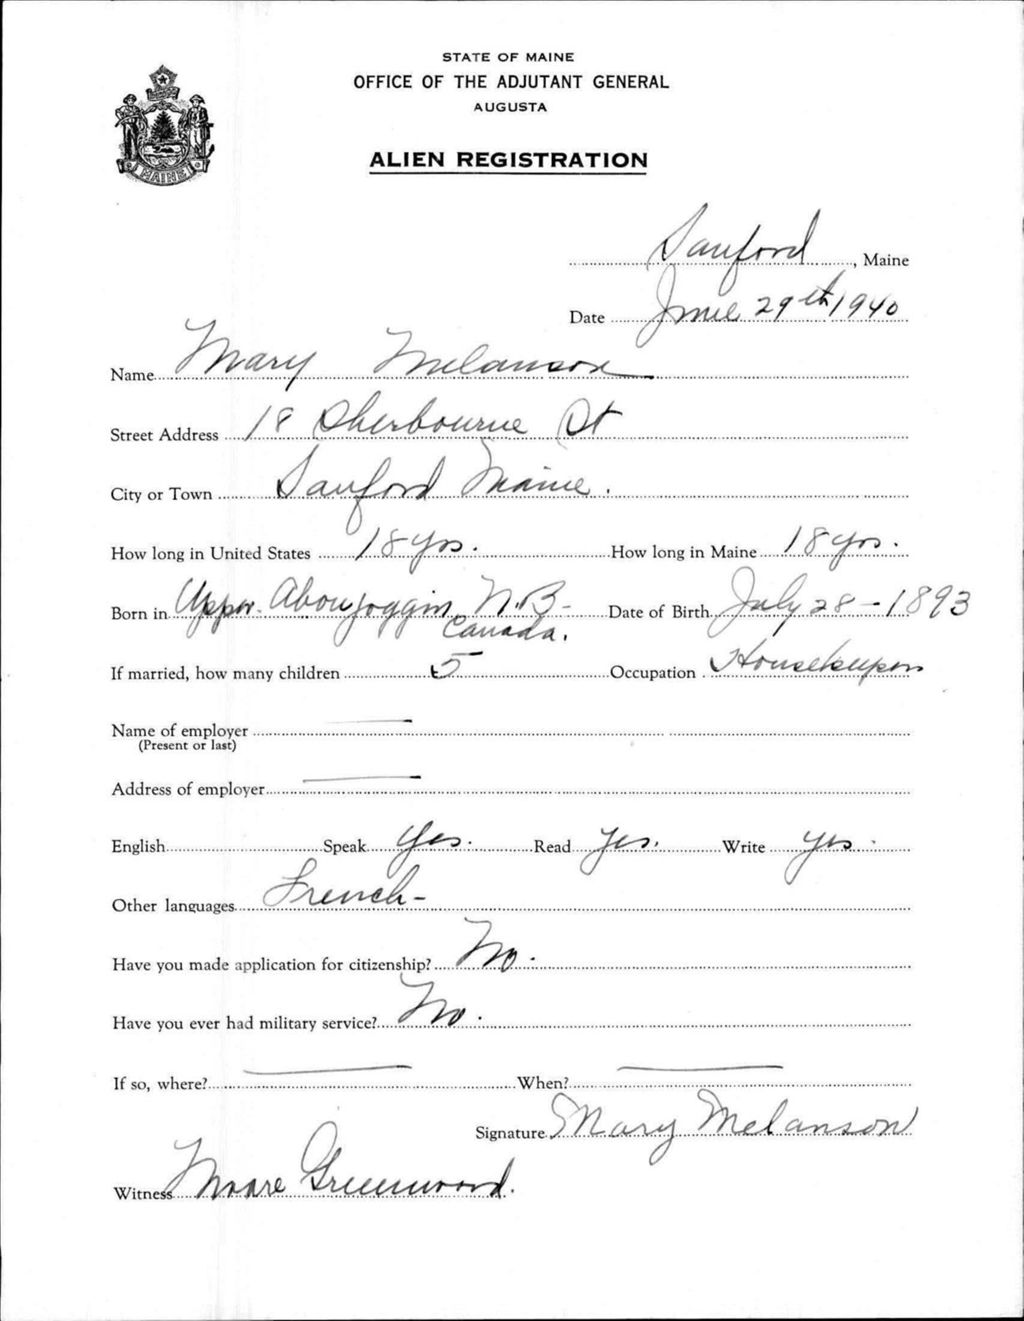 STATE OF MAINE
OFFICE OF THE ADJUTANT GENERAL
AUGUSTA
ALIEN REGISTRATION
MAINE
Sanford, Maine
Date June 29th 1940
Name Mary Melanson
Street Address 18 Sherbourne St
City or Town Sanford Maine.
How long in United States 18 yrs. How long in Maine 18 yrs.
Born in Upper Aboujoggin N.B- Canada. Date of Birth July 28-1893
If married, how many children 5 Occupation Housekeeper
Name of employer
(Present or last)
Address of employer
English Speak Yes. Read Yes. Write Yes.
Other languages French-
Have you made application for citizenship? No.
Have you ever had military service? No.
If so, where? When?
Signature Mary Melanson
Witness Greenwood.